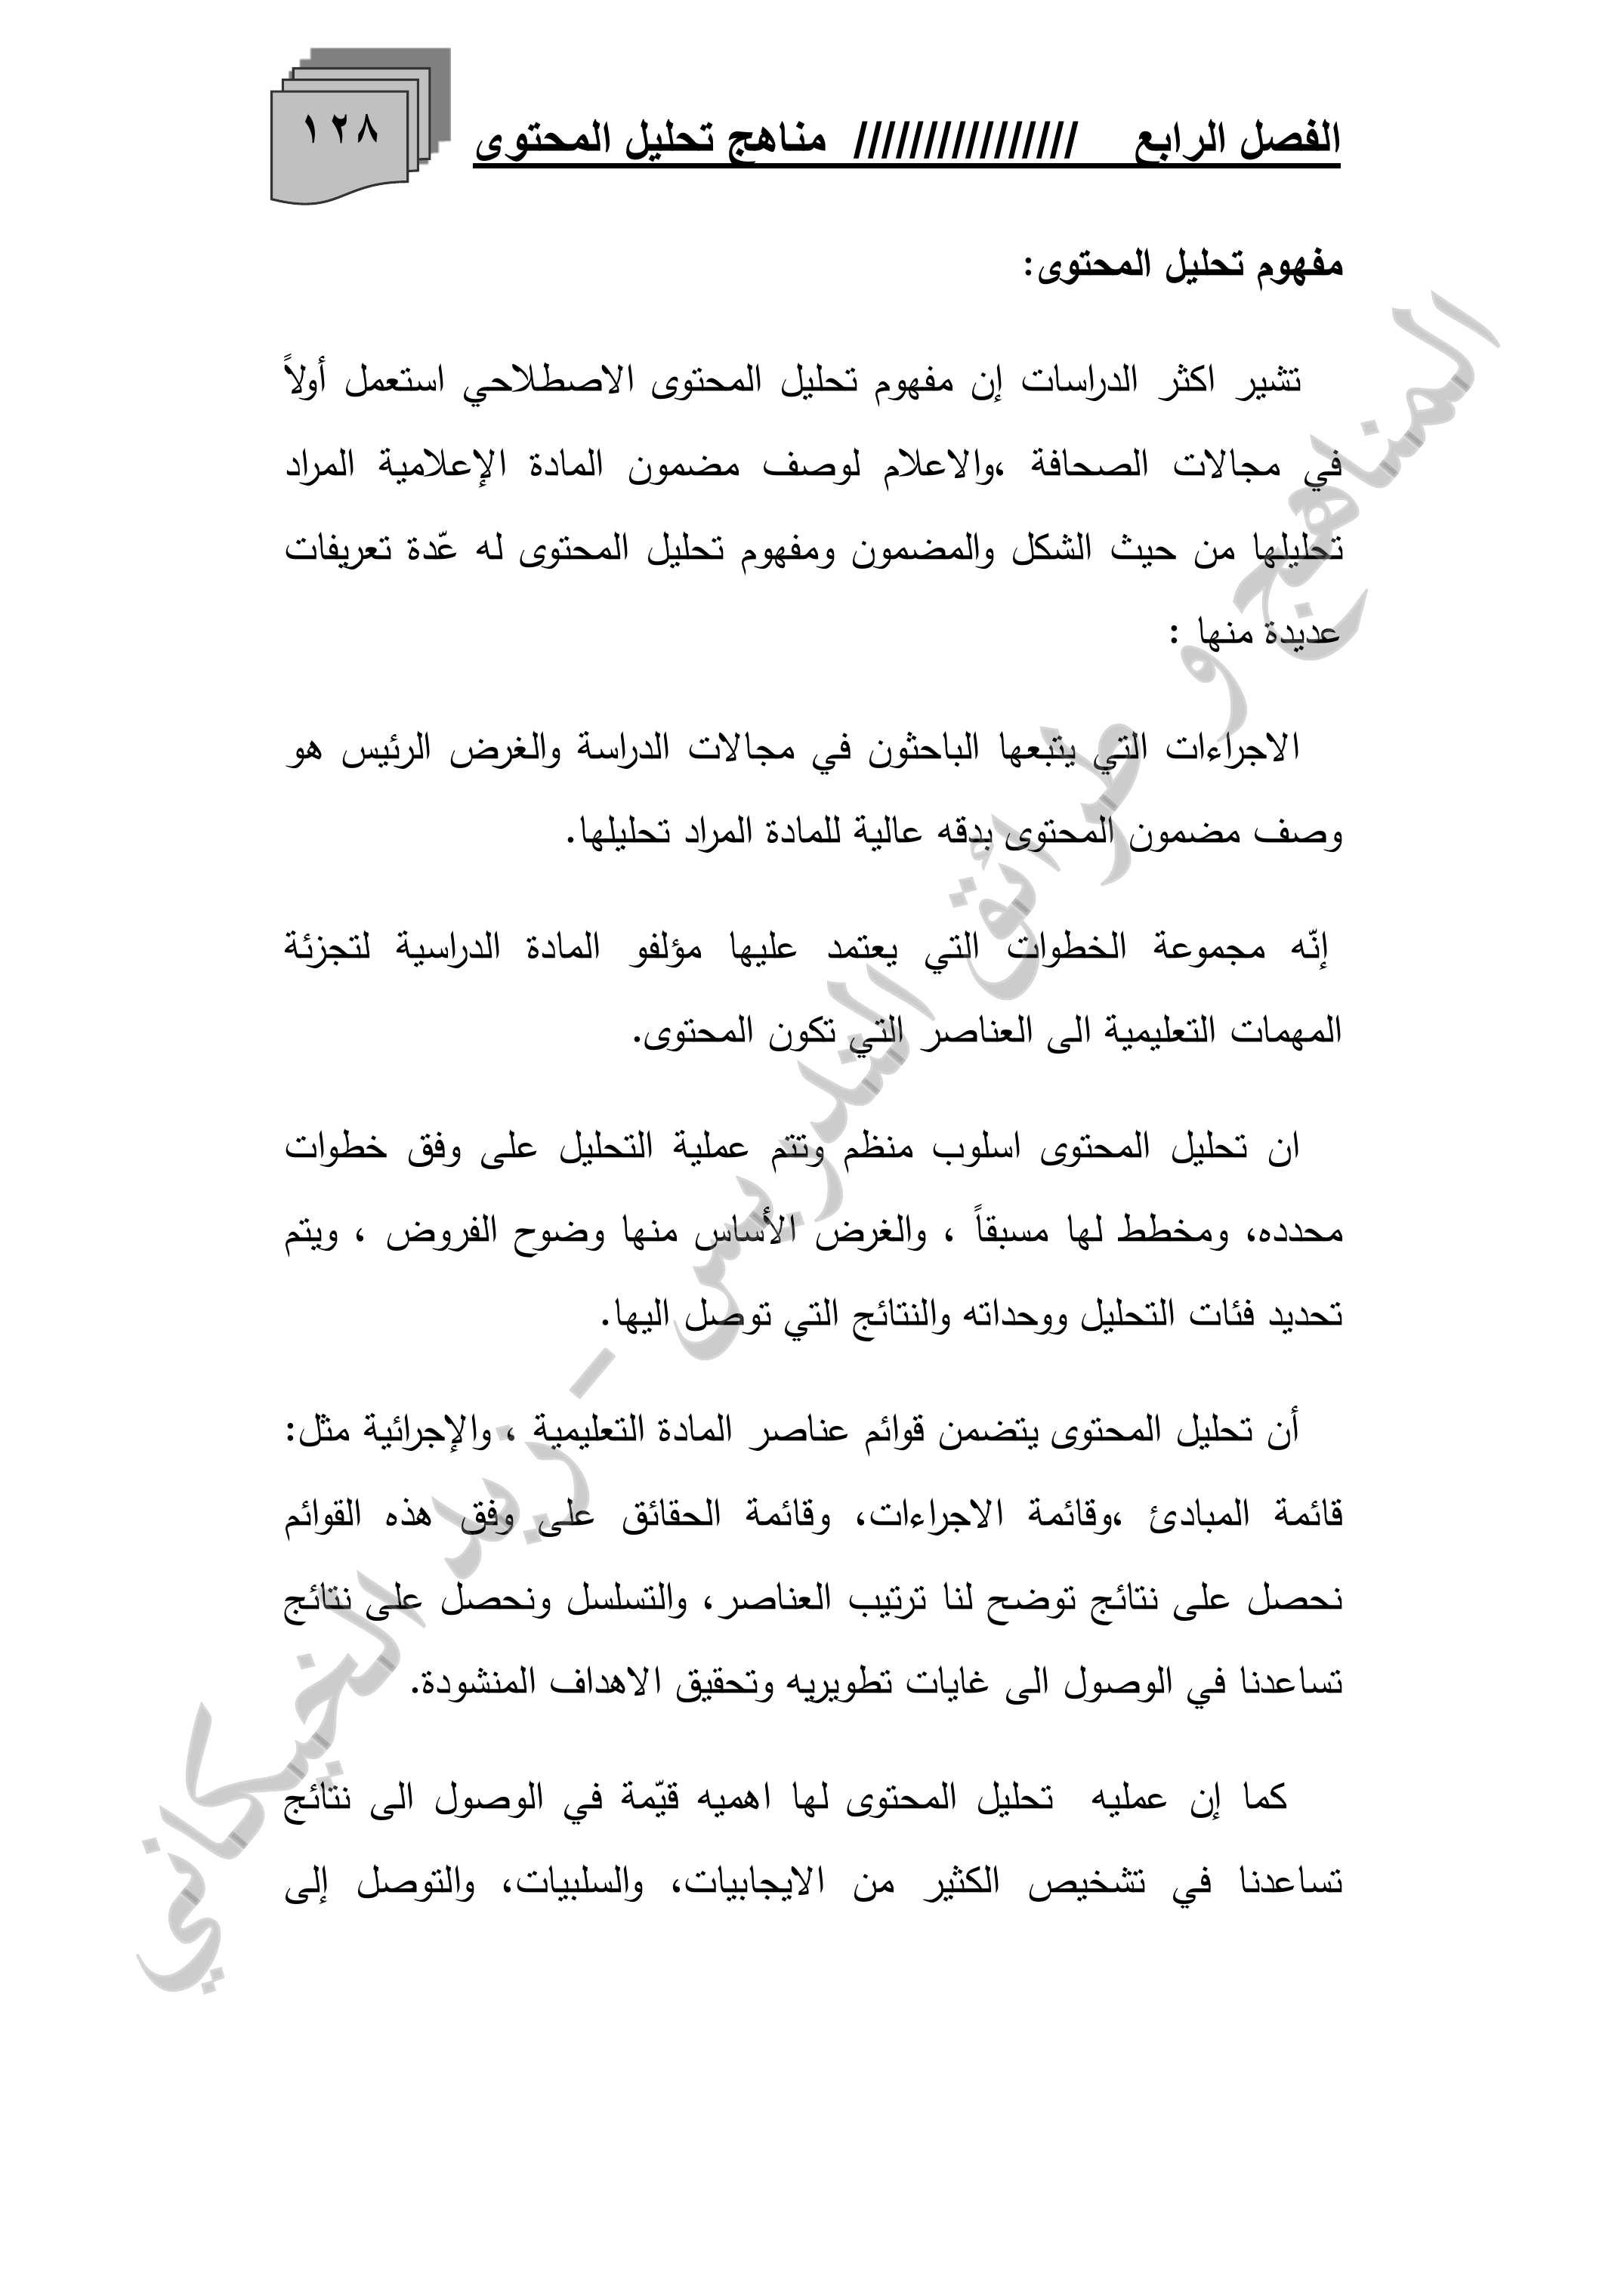 الفصل الرابع //////////////// مناهج تحليل المحتوى
١٢٨
مفهوم تحليل المحتوى:
تشير اكثر الدراسات إن مفهوم تحليل المحتوى الاصطلاحي استعمل أولاً
في مجالات الصحافة ،والاعلام لوصف مضمون المادة الإعلامية المراد
تحليلها من حيث الشكل والمضمون ومفهوم تحليل المحتوى له عّدة تعريفات
عديدة منها :
الاجراءات التي يتبعها الباحثون في مجالات الدراسة والغرض الرئيس هو
وصف مضمون المحتوى بدقه عالية للمادة المراد تحليلها.
إنّه مجموعة الخطوات التي يعتمد عليها مؤلفو المادة الدراسية لتجزئة
المهمات التعليمية الى العناصر التي تكون المحتوى.
ان تحليل المحتوى اسلوب منظم وتتم عملية التحليل على وفق خطوات
محدده، ومخطط لها مسبقاً ، والغرض الأساس منها وضوح الفروض ، ويتم
تحديد فئات التحليل ووحداته والنتائج التي توصل اليها.
أن تحليل المحتوى يتضمن قوائم عناصر المادة التعليمية ، والإجرائية مثل:
قائمة المبادئ ،وقائمة الاجراءات، وقائمة الحقائق على وفق هذه القوائم
نحصل على نتائج توضح لنا ترتيب العناصر، والتسلسل ونحصل على نتائج
تساعدنا في الوصول الى غايات تطويريه وتحقيق الاهداف المنشودة.
كما إن عمليه تحليل المحتوى لها اهميه قيّمة في الوصول الى نتائج
تساعدنا في تشخيص الكثير من الايجابيات، والسلبيات، والتوصل إلى
المناهج و طرائق التدريس - زيد الخيكاني